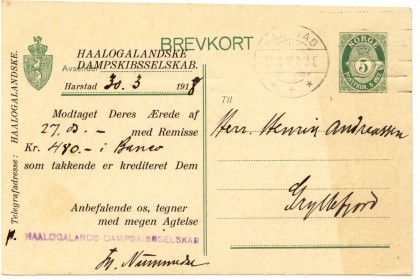 BREVKORT
HAALOGALANDSKE
DAMPSKIBSSELSKAB.
Afsender
Harstad 30. 3 1918
Telegrafadresse: HAALOGALANDSKE.
Modtaget Deres Ærede af
27. ds. - med Remisse
Kr. 480.- i Banco
som takkende er krediteret Dem
Anbefalende os, tegner
med megen Agtelse
HAALOGALANDS DAMPSKIBSSELSKAB
HARSTAD
NORGE
5
Til
Herr. Henrik Andreassen
Gryllefjord